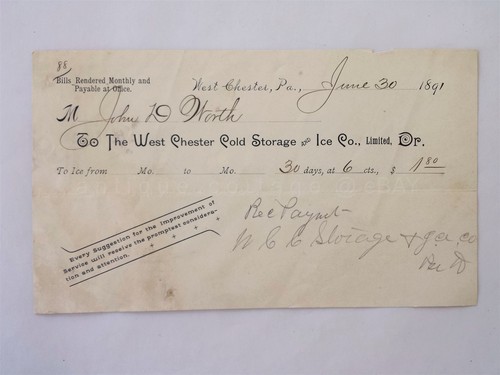 88
Bills Rendered Monthly and
Payable at Office.
West Chester, Pa., June 30 1891
M John D Worth
To The West Chester Cold Storage and Ice Co., Limited, Dr.
To Ice from Mo. to Mo. 30 days, at 6 cts., $ 1 80
Every Suggestion for the Improvement of
Service will receive the promptest considera-
tion and attention.
Rec Paymt
W C C Storage & Ice Co
Per D